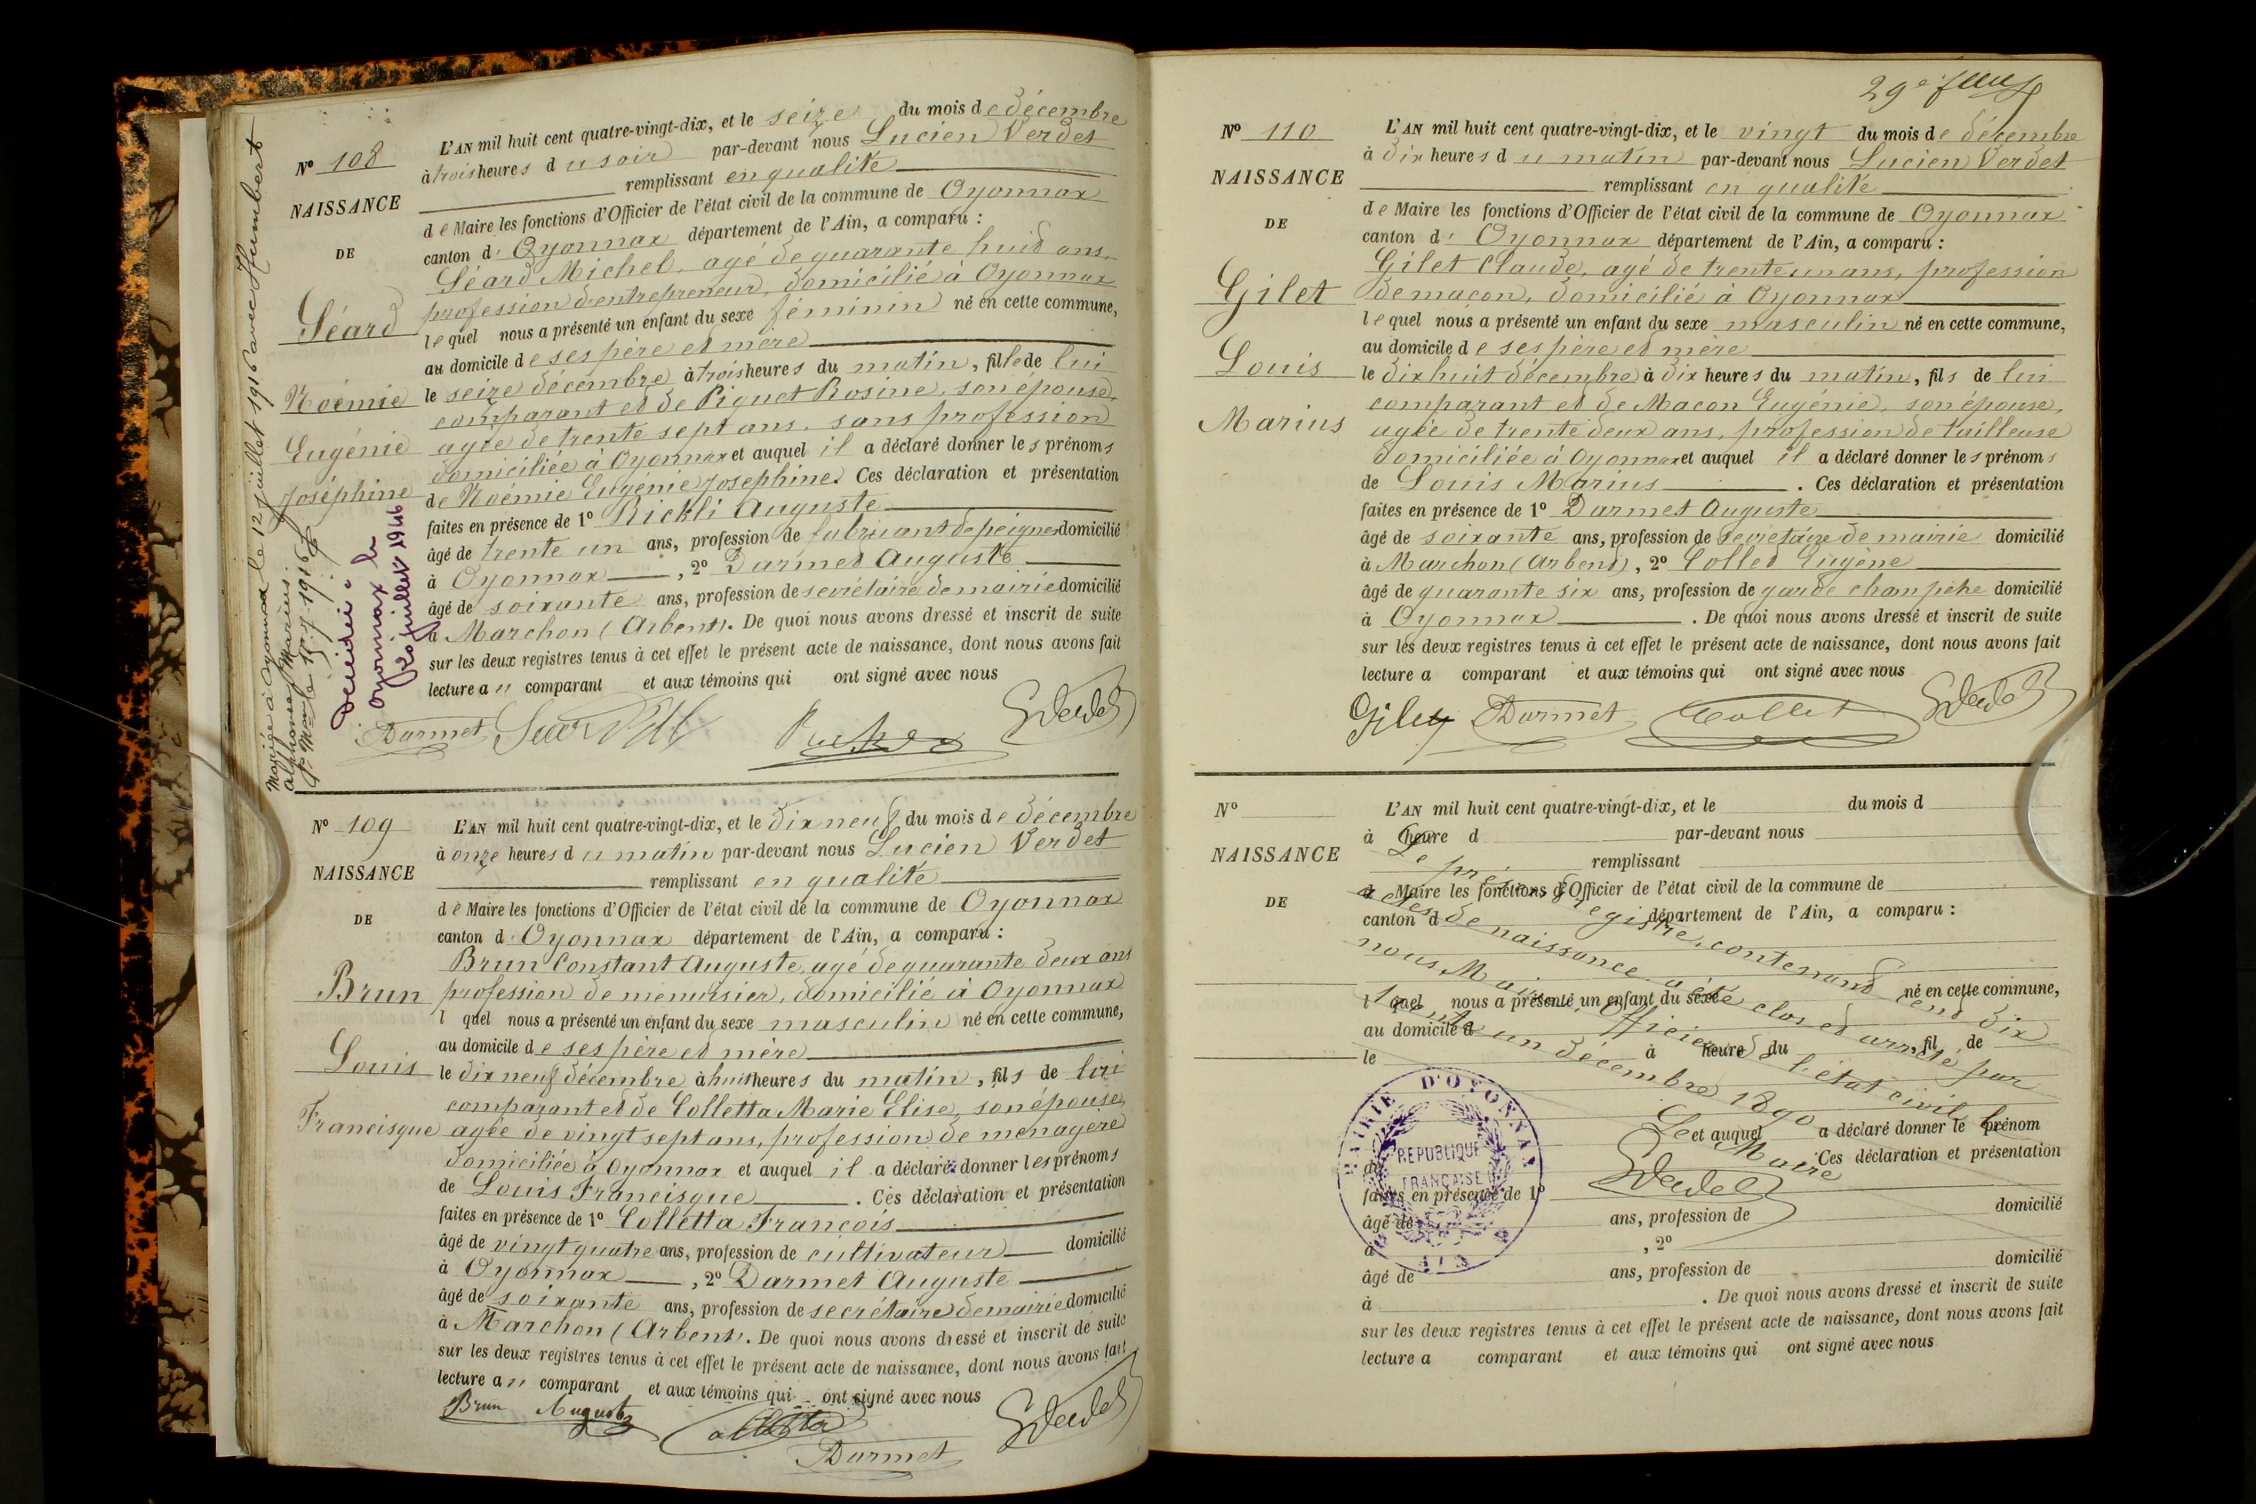 N° 108
NAISSANCE
DE
Séard
Noémie
Eugénie
Joséphine
Mariée à Oyonnax le 12 juillet 1916 avec Humbert
Alphonse Marius.
Décédée à
Oyonnax le
juillet 1946
L'AN mil huit cent quatre-vingt-dix, et le seize du mois de décembre
à trois heures du soir par-devant nous Lucien Verdet
remplissant en qualité
de Maire les fonctions d'Officier de l'état civil de la commune de Oyonnax
canton d' Oyonnax département de l'Ain, a comparu :
Séard Michel, agé de quarante huit ans,
profession d'entrepreneur, domicilié à Oyonnax
lequel nous a présenté un enfant du sexe féminin né en cette commune,
au domicile de ses père et mère
le seize décembre à trois heures du matin, fille de lui
comparant et de Piquet Rosine, son épouse,
agée de trente sept ans, sans profession
domiciliée à Oyonnax et auquel il a déclaré donner les prénoms
de Noémie Eugénie Joséphine. Ces déclaration et présentation
faites en présence de 1° Rickli Auguste
âgé de trente un ans, profession de fabricant de peignes domicilié
à Oyonnax, 2° Darmet Auguste
âgé de soixante ans, profession de secrétaire de mairie domicilié
à Marchon (Arbent). De quoi nous avons dressé et inscrit de suite
sur les deux registres tenus à cet effet le présent acte de naissance, dont nous avons fait
lecture au comparant et aux témoins qui ont signé avec nous
Darmet
N° 109
NAISSANCE
DE
Brun
Louis
Francisque
L'AN mil huit cent quatre-vingt-dix, et le dix neuf du mois de décembre
à onze heures du matin par-devant nous Lucien Verdet
remplissant en qualité
de Maire les fonctions d'Officier de l'état civil de la commune de Oyonnax
canton d' Oyonnax département de l'Ain, a comparu :
Brun Constant Auguste, agé de quarante deux ans
profession de menuisier, domicilié à Oyonnax
l quel nous a présenté un enfant du sexe masculin né en cette commune,
au domicile de ses père et mère
le dix neuf décembre à huit heures du matin, fils de lui
comparant et de Colletta Marie Elise, son épouse,
agée de vingt sept ans, profession de ménagère
domiciliée à Oyonnax et auquel il a déclaré donner les prénoms
de Louis Francisque. Ces déclaration et présentation
faites en présence de 1° Colletta François
âgé de vingt quatre ans, profession de cultivateur domicilié
à Oyonnax, 2° Darmet Auguste
âgé de soixante ans, profession de secrétaire de mairie domicilié
à Marchon (Arbent). De quoi nous avons dressé et inscrit de suite
sur les deux registres tenus à cet effet le présent acte de naissance, dont nous avons fait
lecture au comparant et aux témoins qui ont signé avec nous
Brun Auguste
Darmet
N° 110
NAISSANCE
DE
Gilet
Louis
Marius
L'AN mil huit cent quatre-vingt-dix, et le vingt du mois de décembre
à dix heures du matin par-devant nous Lucien Verdet
remplissant en qualité
de Maire les fonctions d'Officier de l'état civil de la commune de Oyonnax
canton d' Oyonnax département de l'Ain, a comparu :
Gilet Claude, agé de trente un ans, profession
de maçon, domicilié à Oyonnax
lequel nous a présenté un enfant du sexe masculin né en cette commune,
au domicile de ses père et mère
le dix huit décembre à dix heures du matin, fils de lui
comparant et de Macon Eugénie, son épouse,
agée de trente deux ans, profession de tailleuse
domiciliée à Oyonnax et auquel il a déclaré donner les prénoms
de Louis Marius. Ces déclaration et présentation
faites en présence de 1° Darmet Auguste
âgé de soixante ans, profession de secrétaire de mairie domicilié
à Marchon (Arbent), 2° Collet Eugène
âgé de quarante six ans, profession de garde champêtre domicilié
à Oyonnax. De quoi nous avons dressé et inscrit de suite
sur les deux registres tenus à cet effet le présent acte de naissance, dont nous avons fait
lecture a comparant et aux témoins qui ont signé avec nous
Gilet Darmet Collet
N°
NAISSANCE
DE
L'AN mil huit cent quatre-vingt-dix, et le du mois d
à heure d par-devant nous
remplissant
d Maire les fonctions d'Officier de l'état civil de la commune de
canton d département de l'Ain, a comparu :
l quel nous a présenté un enfant du sexe né en cette commune,
au domicile d
le à heure du , fil de
et auquel a déclaré donner le prénom
de Ces déclaration et présentation
faites en présence de 1°
âgé de ans, profession de domicilié
à , 2°
âgé de ans, profession de domicilié
à . De quoi nous avons dressé et inscrit de suite
sur les deux registres tenus à cet effet le présent acte de naissance, dont nous avons fait
lecture a comparant et aux témoins qui ont signé avec nous
Le présent registre, contenant cent dix
actes de naissance a été clos et arrêté par
nous Maire, officier de l'état civil, le
trente un décembre 1890
Le Maire
MAIRIE D'OYONNAX
RÉPUBLIQUE
FRANÇAISE
AIN